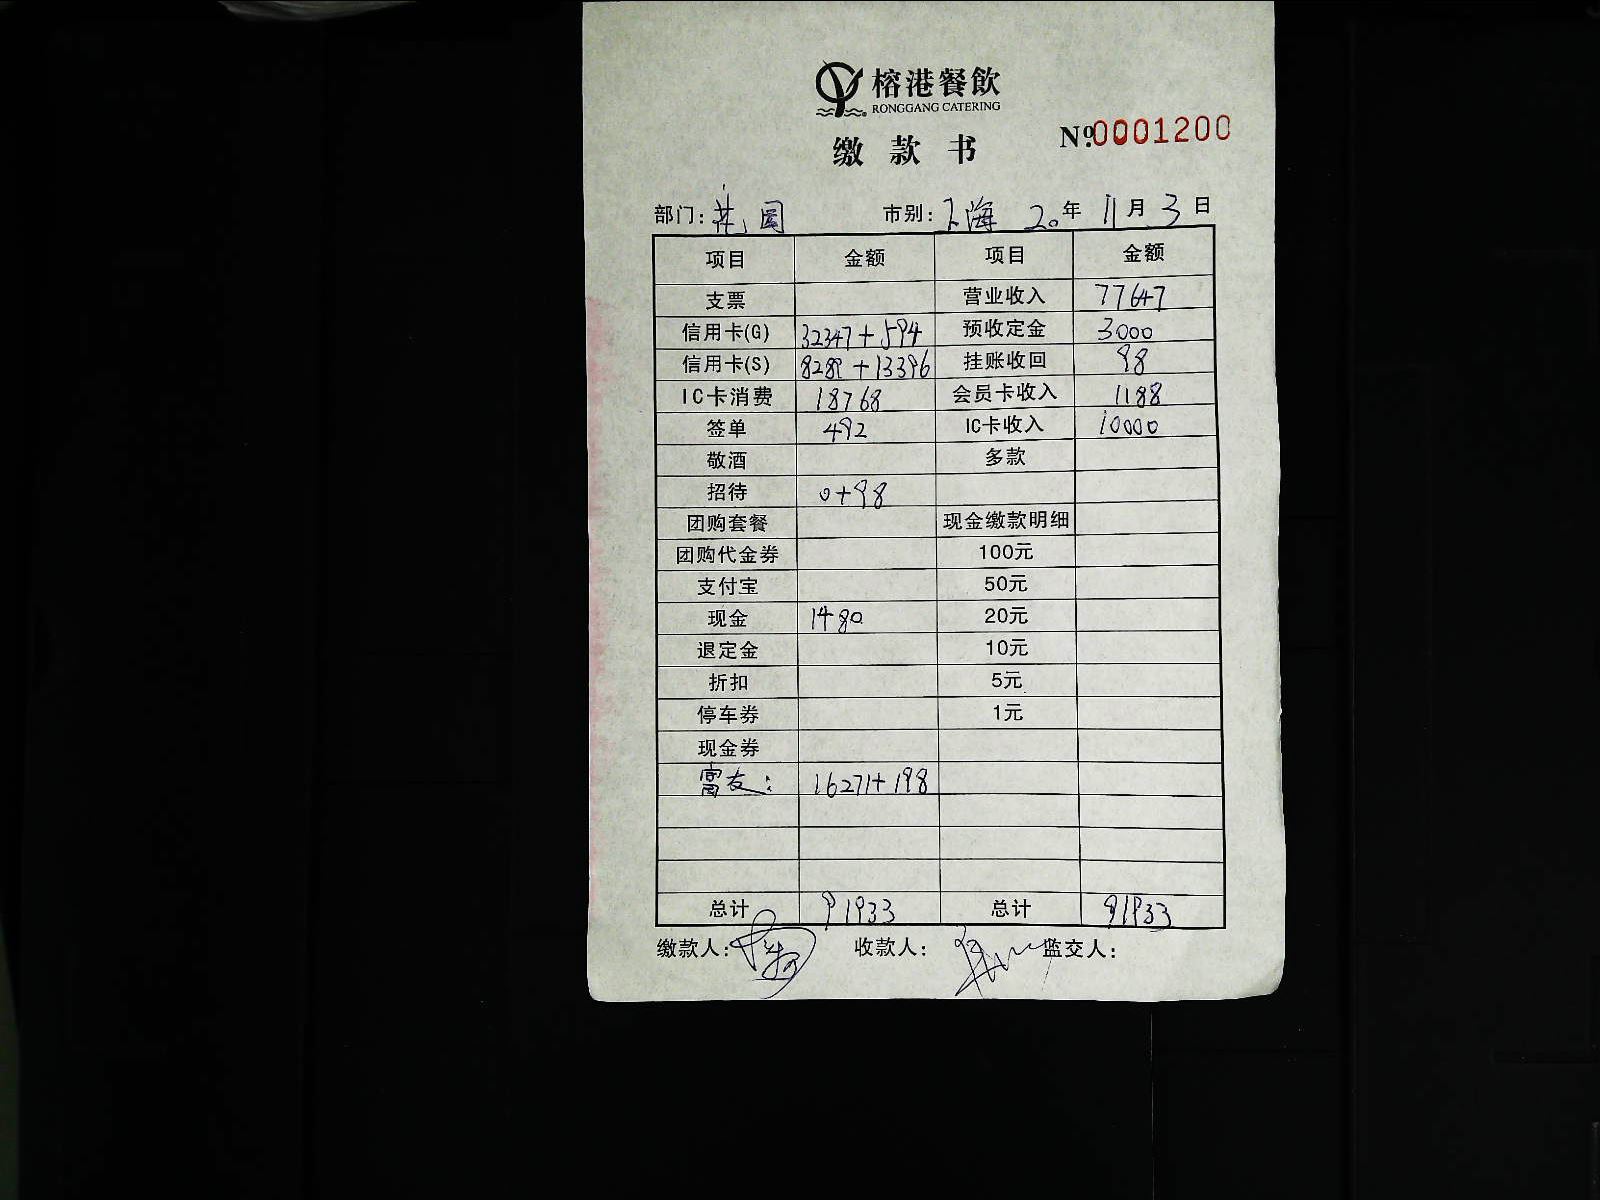 榕港餐飲
RONGGANG CATERING
缴款书 №0001200
部门: 花园 市别: 上海 20年 11月 3日
项目 金额 项目 金额
支票 营业收入 77647
信用卡(G) 32347+594 预收定金 3000
信用卡(S) 8289+13396 挂账收回 98
IC卡消费 18768 会员卡收入 1188
签单 492 IC卡收入 10000
敬酒 多款
招待 0+98
团购套餐 现金缴款明细
团购代金券 100元
支付宝 50元
现金 1480 20元
退定金 10元
折扣 5元
停车券 1元
现金券
富友: 16271+198
总计 91933 总计 91933
缴款人: 收款人: 监交人: